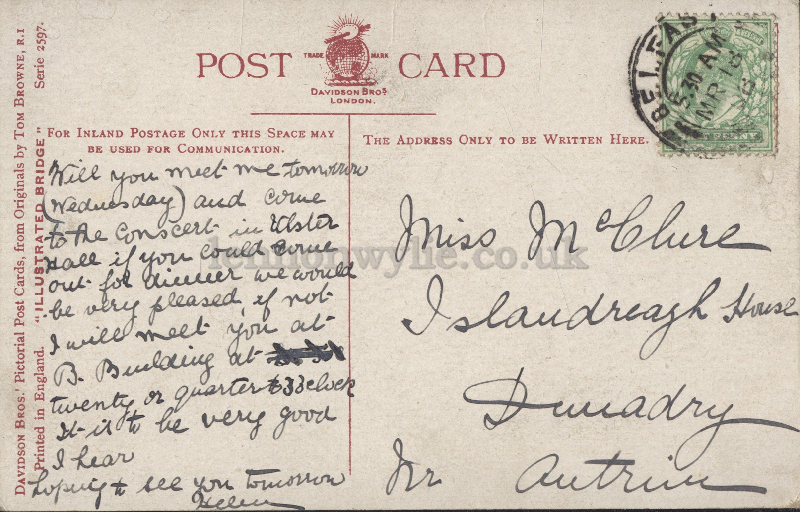 POST CARD
TRADE MARK
DAVIDSON BROS.
LONDON.
FOR INLAND POSTAGE ONLY THIS SPACE MAY
BE USED FOR COMMUNICATION.
THE ADDRESS ONLY TO BE WRITTEN HERE.
BELFAST
5.30 AM
MR 13
PENNY
DAVIDSON BROS.' Pictorial Post Cards, from Originals by TOM BROWNE, R.I
Printed in England. "ILLUSTRATED BRIDGE" Serie 2597.
Will you meet me tomorrow
(Wednesday) and come
to the Conscert in Ulster
Hall if you could come
out for dinner we would
be very pleased, if not
I will meet you at
B. Building at
twenty or quarter to 3 o'clock
It is to be very good
I hear
hoping to see you tomorrow
Helen
Miss McClure
Islandreagh House
Dunadry
Nr Antrim
lennonwylie.co.uk